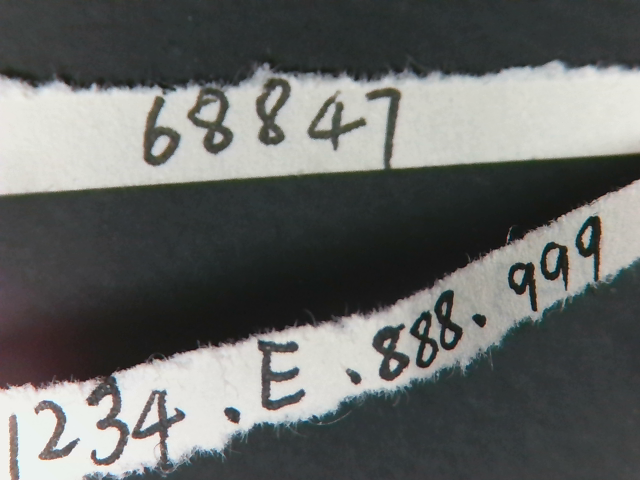 68847
1234.E.888.999